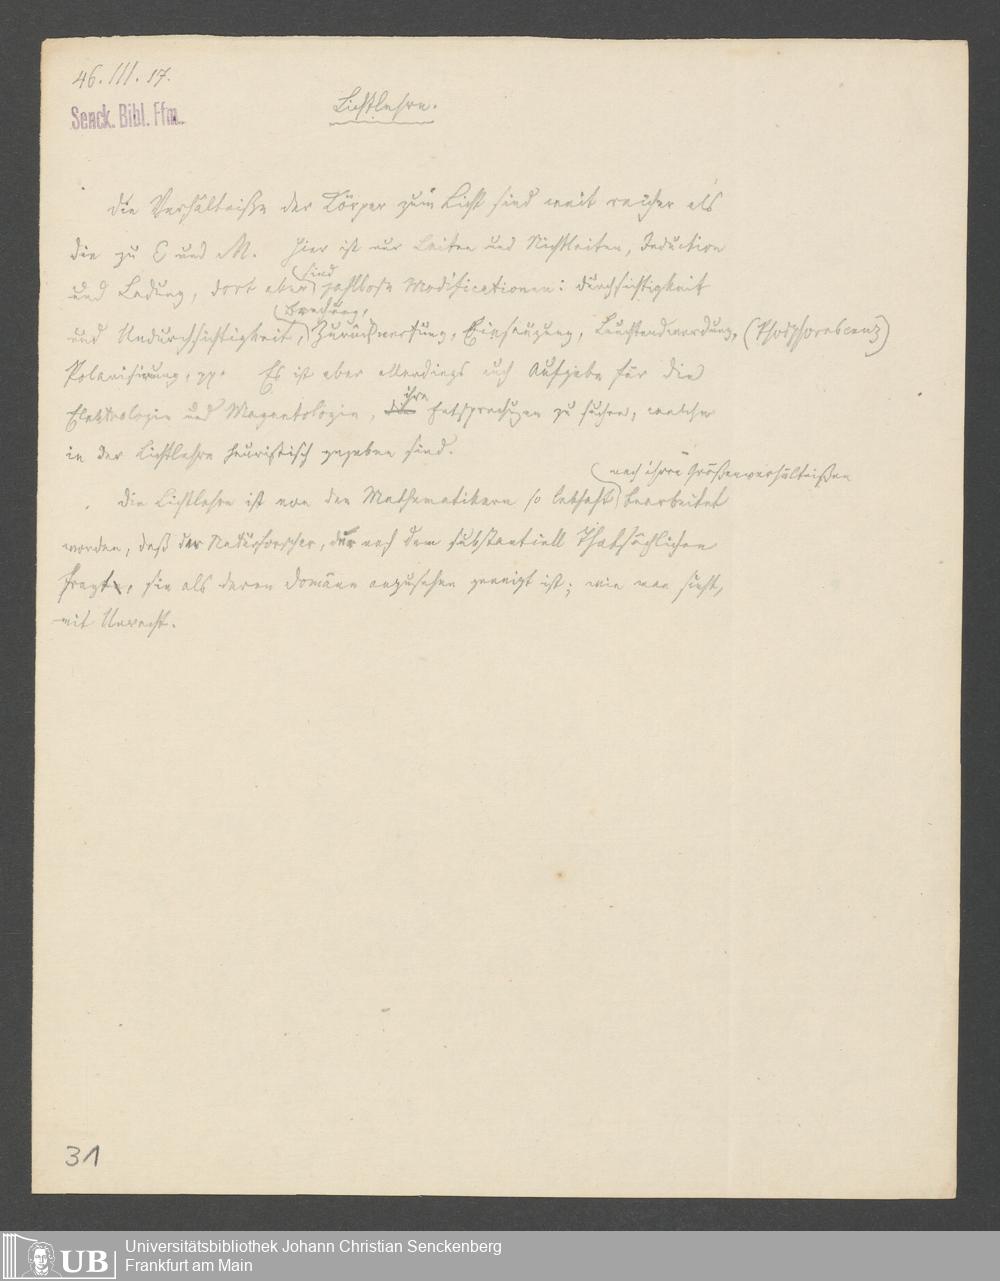 46.III.17.
Senck. Bibl. Ffm.
Lichtlehre.
Die Verhältniße der Körper zum Licht sind weit reicher als
die zu E und M. Hier ist nur Leiten und Nichtleiten, Induction
und Ladung, dort aber sind zahllose Modificationen: Durchsichtigkeit
und Undurchsichtigkeit, Brechung, Zurückwerfung, Einsaugung, Leuchtendwerdung, (Phosphorescenz)
Polarisirung, pp. Es ist aber allerdings auch Aufgabe für die
Elektrologie und Magnetologie, die ihre Entsprechungen zu suchen, welche
in der Lichtlehre heuristisch gegeben sind.
nach ihren Größenverhältnißen
Die Lichtlehre ist von den Mathematikern so lebhaft bearbeitet
worden, daß der Naturforscher, der nach dem substantiell Thatsächlichen
fragt, sie als deren Domäne anzusehen geneigt ist; wie man sieht,
mit Unrecht.
31
UB
Universitätsbibliothek Johann Christian Senckenberg
Frankfurt am Main